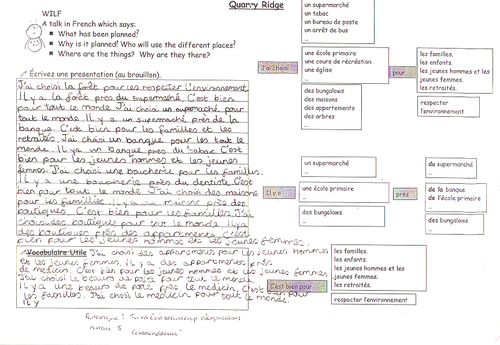 Quarry Ridge
WILF
A talk in French which says:
What has been planned?
Why is it planned? Who will use the different places?
Where are the things? Why are they there?
Écrivez une presentation (au brouillon).
J'ai choisi la forêt pour les respecter l'environnement.
Il y a la forêt près du supermarché. C'est bien
pour tout le monde. J'ai choisi un supermarché pour
tout le monde. Il y a un supermarché près de la
banque. C'est bien pour les familles et les
retraités. J'ai choisi un banque pour les tout le
monde. Il y a un banque près du tabac. C'est
bien pour les jeunes hommes et les jeunes
femmes. J'ai choisi une boucherie pour les familles.
Il y a une boucherie près du dentiste. C'est
bien pour tout le monde. J'ai choisi des maisons
pour les familles. Il y a maisons près des
boutiques. C'est bien pour les familles. J'ai
choisi des boutiques pour tout le monde. Il y a
des boutiques près des appartements. C'est
bien pour les jeunes hommes et les jeunes femmes.
Vocabulaire Utile J'ai choisi des appartements pour les jeunes hommes
et les jeunes femmes. Il y a des appartements près
de medicin. C'est bien pour les jeunes hommes et les jeunes femmes.
J'ai choisi le bureau de poste pour tout le monde.
Il y a une bureau de poste près le medicin. C'est bien pour
les familles. J'ai choisi le medicin pour tout le monde.
Il y
niveau 5
un supermarché
un tabac
un bureau de poste
un arrêt de bus
...
J'ai choisi
une école primaire
une cours de récréation
une église
...
des bungalows
des maisons
des appartements
des arbres
...
pour
les familles.
les enfants.
les jeunes hommes et les
jeunes femmes.
les retraités.
respecter
l'environnement
Il y a
un supermarché
...
une école primaire
...
des bungalows
...
près
du supermarché
...
de la banque
de l'école primaire
...
des bungalows
...
C'est bien pour
les familles.
les enfants.
les jeunes hommes et les
jeunes femmes.
les retraités.
respecter l'environnement